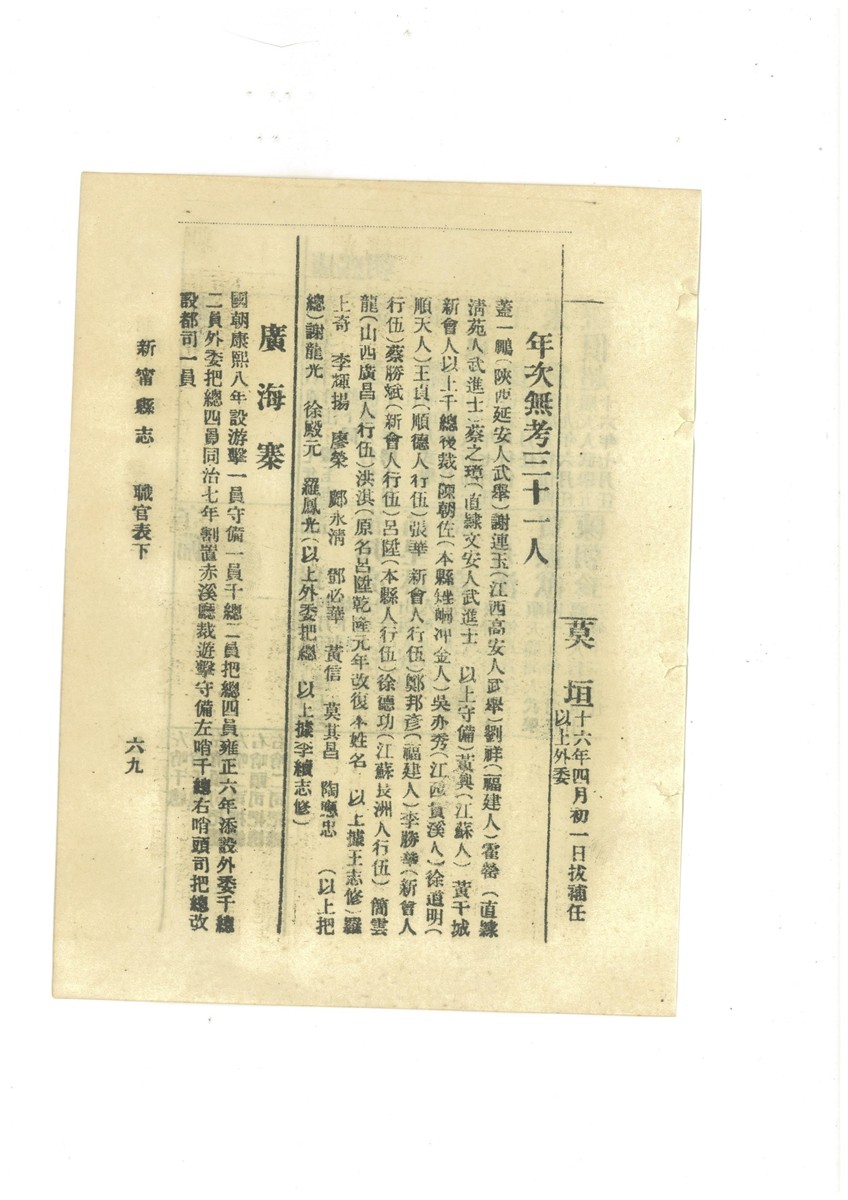 莫垣 十六年四月初一日拔補任
以上外委
年次無考三十一人
蓋一鵬(陝西延安人武舉)謝連玉(江西高安人武舉)劉祥(福建人)霍 (直隸
清苑人武進士 蔡之 (直隸文安人武進士 以上守備)黃興(江蘇人) 黃干城
新會人以上千總後裁)陳朝佐(本縣矬峒沖金人)吳亦秀(江西貴溪人)徐道明(
順天人)王貞(順德人行伍)張華 新會人行伍)鄭邦彦(福建人)李勝 (新會人
行伍)蔡勝斌(新會人行伍)呂陞(本縣人行伍)徐德功(江蘇長洲人行伍) 簡雲
龍(山西廣昌人行伍)洪淇(原名呂陞乾隆元年改復本姓名 以上據王志修)羅
上奇 李輝揚 廖榮 鄺永清 鄧必華 黃信 莫其昌 陶應忠 (以上把
總)謝龍光 徐殿元 羅鳳光(以上外委把總 以上據李續志修)
廣海寨
國朝康熙八年設游擊一員守備一員千總二員把總四員雍正六年添設外委千總
二員外委把總四員同治七年割置赤溪廳裁遊擊守備左哨千總右哨頭司把總改
設都司一員
新甯縣志 職官表下
六九